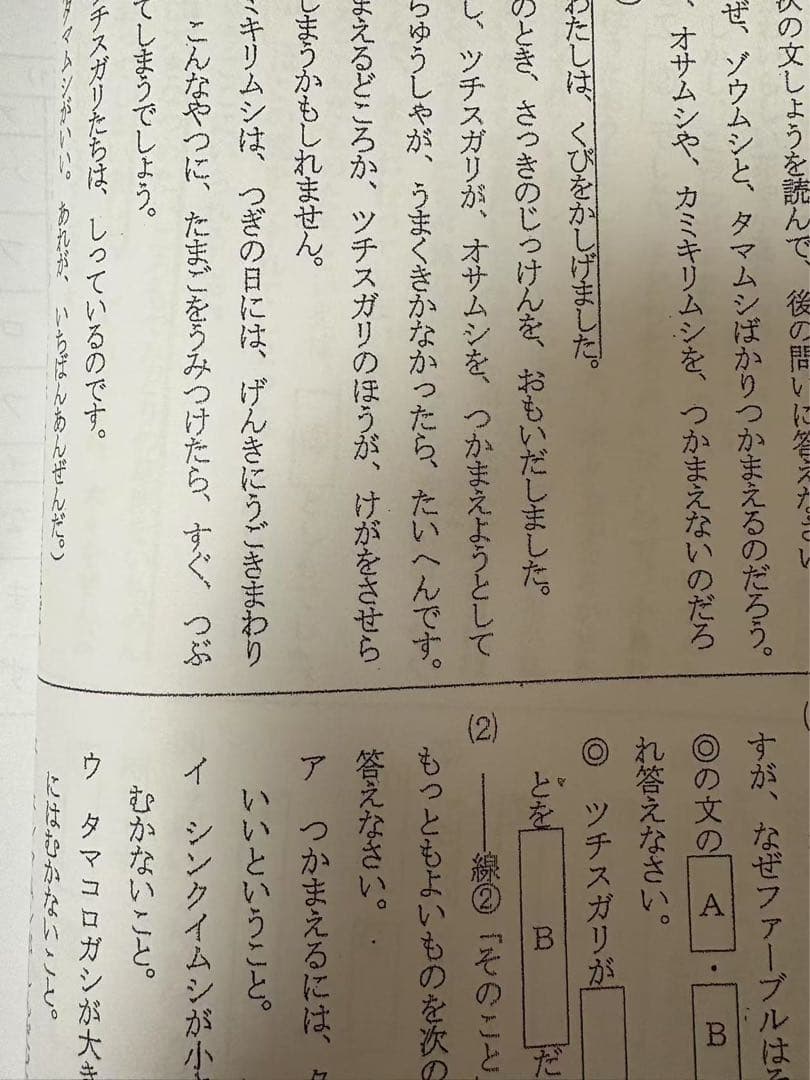 次の文しょうを読んで、後の問いに答えなさい
ぜ、ゾウムシと、タマムシばかりつかまえるのだろう。
、オサムシや、カミキリムシを、つかまえないのだろ
わたしは、くびをかしげました。
のとき、さっきのじっけんを、おもいだしました。
し、ツチスガリが、オサムシを、つかまえようとして
ちゅうしゃが、うまくきかなかったら、たいへんです。
まえるどころか、ツチスガリのほうが、けがをさせら
しまうかもしれません。
ミキリムシは、つぎの日には、げんきにうごきまわり
こんなやつに、たまごをうみつけたら、すぐ、つぶ
てしまうでしょう。
チスガリたちは、しっているのです。
タマムシがいい。あれが、いちばんあんぜんだ。)
すが、なぜファーブルは
◎の文の A ・ B
れ答えなさい。
◎ ツチスガリが
とを B だ
(2) ――線②「そのこと
もっともよいものを次の
答えなさい。
ア つかまえるには、
いいということ。
イ シンクイムシが小
むかないこと。
ウ タマコロガシが大き
にはむかないこと。